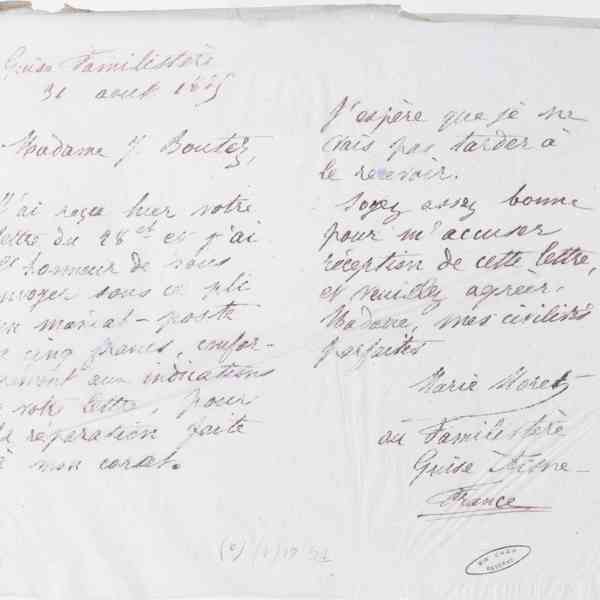 Guise Familistère
31 août 1895
Madame J. Boutez,
J'ai reçu hier votre
lettre du 28 ct et j'ai
l'honneur de vous
envoyer sous ce pli
un mandat-poste
cinq francs, confor-
mément aux indications
votre lettre, pour
la réparation faite
à mon corset.
J'espère que je ne
vais pas tarder à
le recevoir.
Soyez assez bonne
pour m'accuser
réception de cette lettre,
et veuillez agréer,
Madame, mes civilités
parfaites
Marie Moret
au Familistère
Guise Aisne-
France